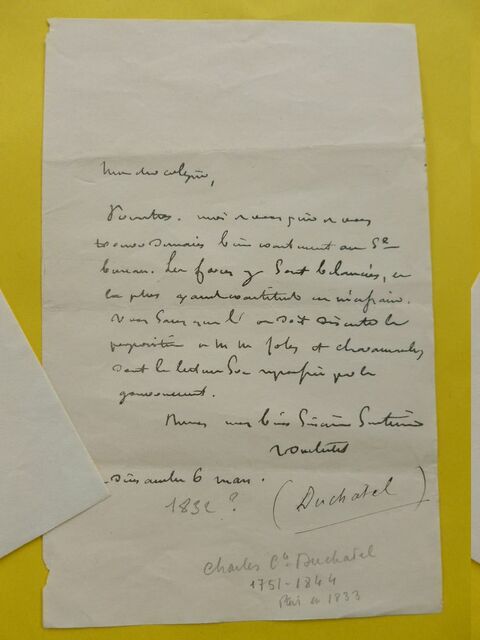 Mon cher collègue,
Permettez-moi de vous prier de vous
trouver demain bien exactement au 5e
bureau. Les forces y sont balancées, et
la plus grande exactitude est nécessaire.
Vous savez que l'on doit discuter la
proposition de MM
dont la lecture sera repoussée par le
gouvernement.
mes bien sincères sentiments
Duchatel
Dimanche 6 mars.
1832 ?
(Duchatel)
Charles Cte Duchatel
1751-1844
Pair en 1833